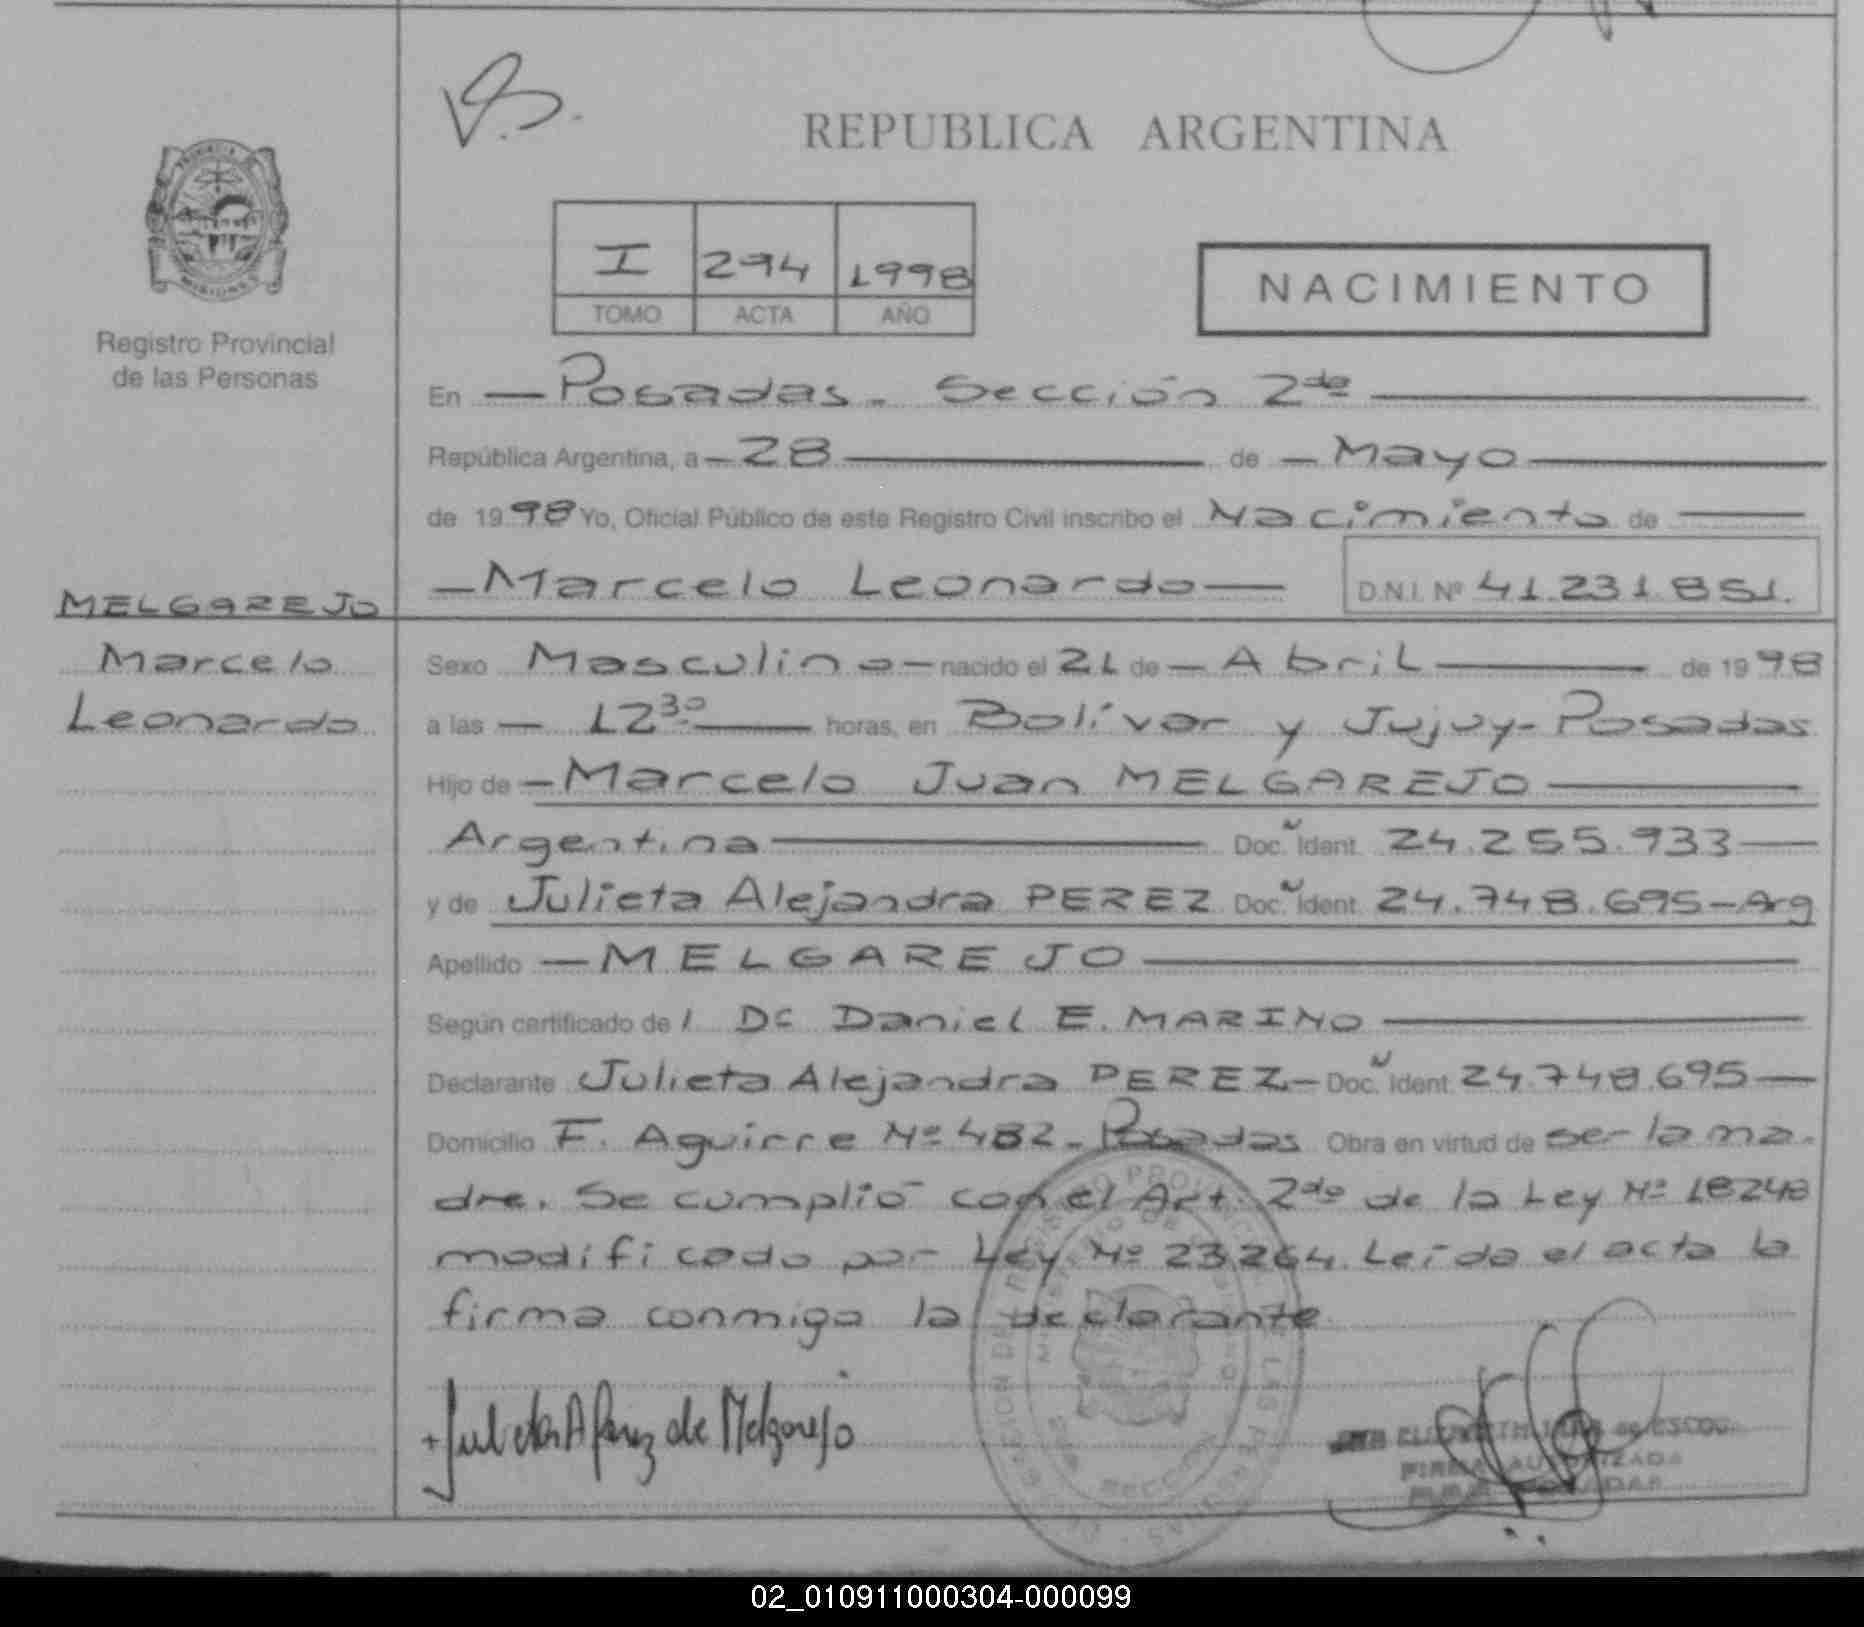 REPUBLICA ARGENTINA
PROVINCIA
MISIONES
Registro Provincial
de las Personas
I 294 1998
TOMO ACTA AÑO
NACIMIENTO
En Posadas. Sección 2da
República Argentina, a 28 de Mayo
de 1998 Yo, Oficial Público de este Registro Civil inscribo el Nacimiento de
Marcelo Leonardo D.N.I. Nº 41.231.851.
MELGAREJO
Marcelo
Leonardo
Sexo Masculino nacido el 21 de Abril de 1998
a las 12 30 horas, en Bolívar y Jujuy - Posadas
Hijo de Marcelo Juan MELGAREJO
Argentina Doc. Ident. 24.255.933
y de Julieta Alejandra PEREZ Doc. Ident. 24.748.695 - Arg
Apellido MELGAREJO
Según certificado de l Dr Daniel E. MARINO
Declarante Julieta Alejandra PEREZ - Doc. Ident. 24.748.695
Domicilio F. Aguirre Nº 482 - Posadas Obra en virtud de ser la ma-
dre. Se cumplió con el Art. 2do de la Ley Nº 18248
modificado por Ley Nº 23264. Leída el acta la
firma conmigo la declarante
Julieta A Perez de Melgarejo
FIRMA AUTORIZADA
02_010911000304-000099